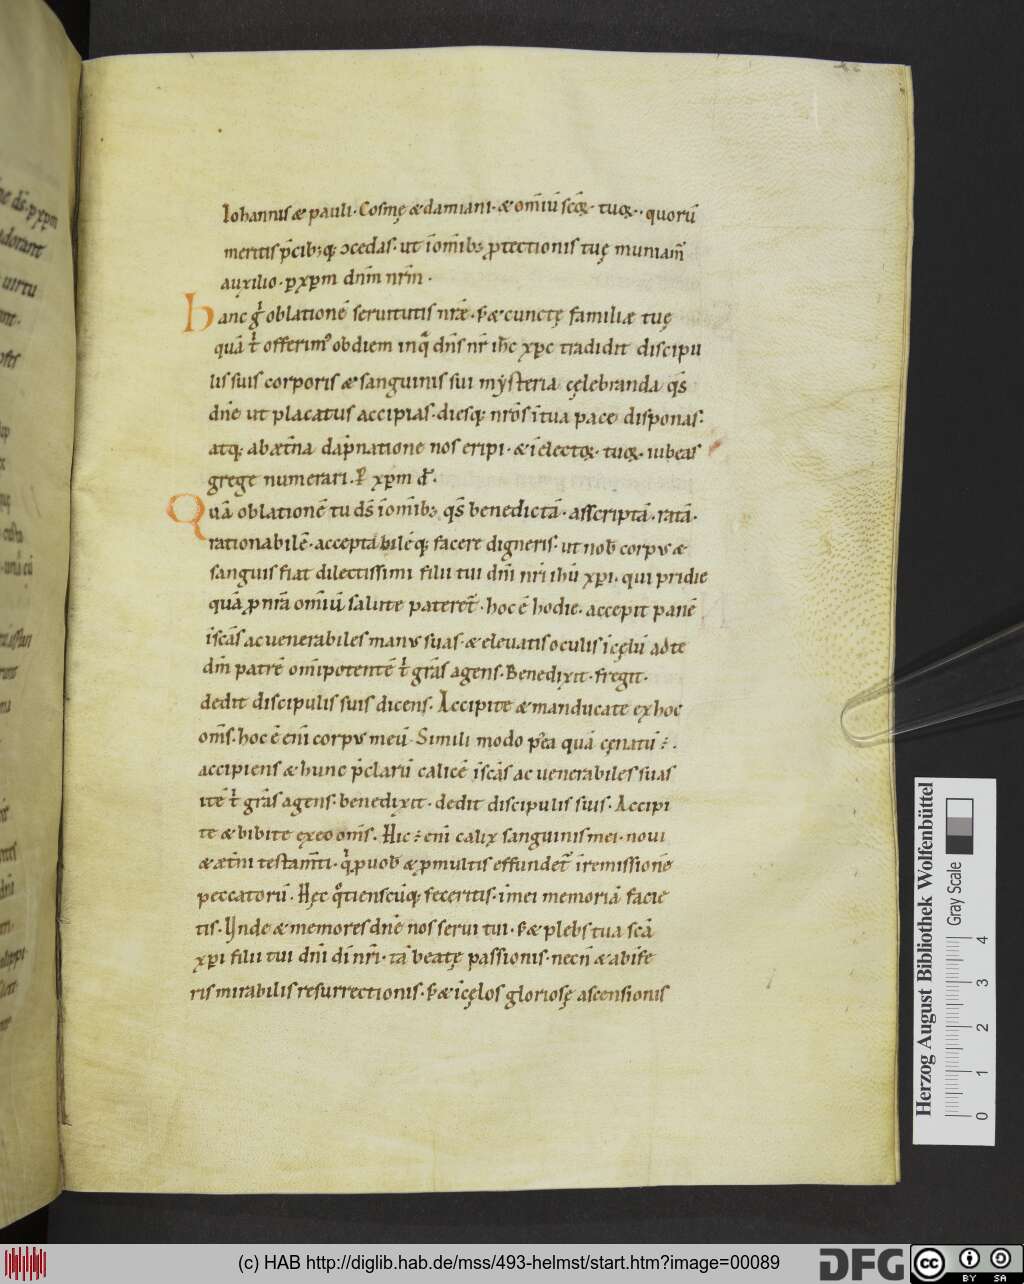 Iohannis æ pauli · Cosmę æ damiani · æ om̄iū scōꝝ · tuoꝝ · quorū
meritis p̄cib;q; ↄcedas · ut ī om̄ib; ꝓtectionis tuę muniam̄
auxilio · p xp̄m dnm̄ nrm̄ ·
hanc gͥ oblationē seruitutis nr̄æ · s; æ cunctę familiæ tuę
quā tͥ offerim᷒ ob diem in q̄ dn̄s nr̄ ih̄c xp̄c tradidit discipu
lis suis corporis æ sanguinis sui mẏsteria cęlebranda qs̄
dn̄e ut placatus accipias · diesq; nrōs ī tua pace disponas ·
atq; ab ætn̄a dāpnatione nos eripi · æ ī electoꝝ · tuoꝝ · iubeas
grege numerari · P xp̄m d̄ ·
Quā oblationē tu ds̄ ī om̄ib; qs̄ benedictā · asscriptā · ratā ·
rationabilē · acceptabilēq; facere digneris · ut nob̄ corpus æ
sanguis fiat dilectissimi filii tui dn̄i nr̄i ih̄u xp̄i · qui pridie
quā ꝓ nrā om̄iū salute pateret̄ · hoc ē hodie · accepit panē
ī scās ac uenerabiles manus suas · æ eleuatis oculis ī cęlū ad te
dm̄ patrē om̄ipotentē tͥ grās agens · Benedixit · fregit ·
dedit discipulis suis dicens · Accipite æ manducate ex hoc
om̄s · hoc ē en̄i corpus meū Simili modo p̄ea quā cęnatū ÷ .
accipiens æ hunc p̄clarū calicē ī scās ac uenerabiles suas
itē tͥ grās agens · benedixit · dedit discipulis suis · Accipi
te æ bibite ex eo om̄s . Hic ÷ en̄i calix sanguinis mei · noui
æ ætn̄i testam̄ti · qͥ ꝓ uob̄ æ ꝓ multis effundet̄ ī remissionē
peccatorū · Hęc qͦtienscūq; feceritis · ī mei memoriā facie
tis · Unde æ memores dn̄e nos serui tui · s; æ plebs tua scā
xp̄i filii tui dn̄i dī nr̄i · tā beatę passionis · necn̄ æ ab ife
ris mirabilis resurrectionis · s; æ ī cęlos gloriosę ascensionis
Herzog August Bibliothek Wolfenbüttel
Gray Scale
0 1 2 3 4
(c) HAB http://diglib.hab.de/mss/493-helmst/start.htm?image=00089
DFG
cc BY SA